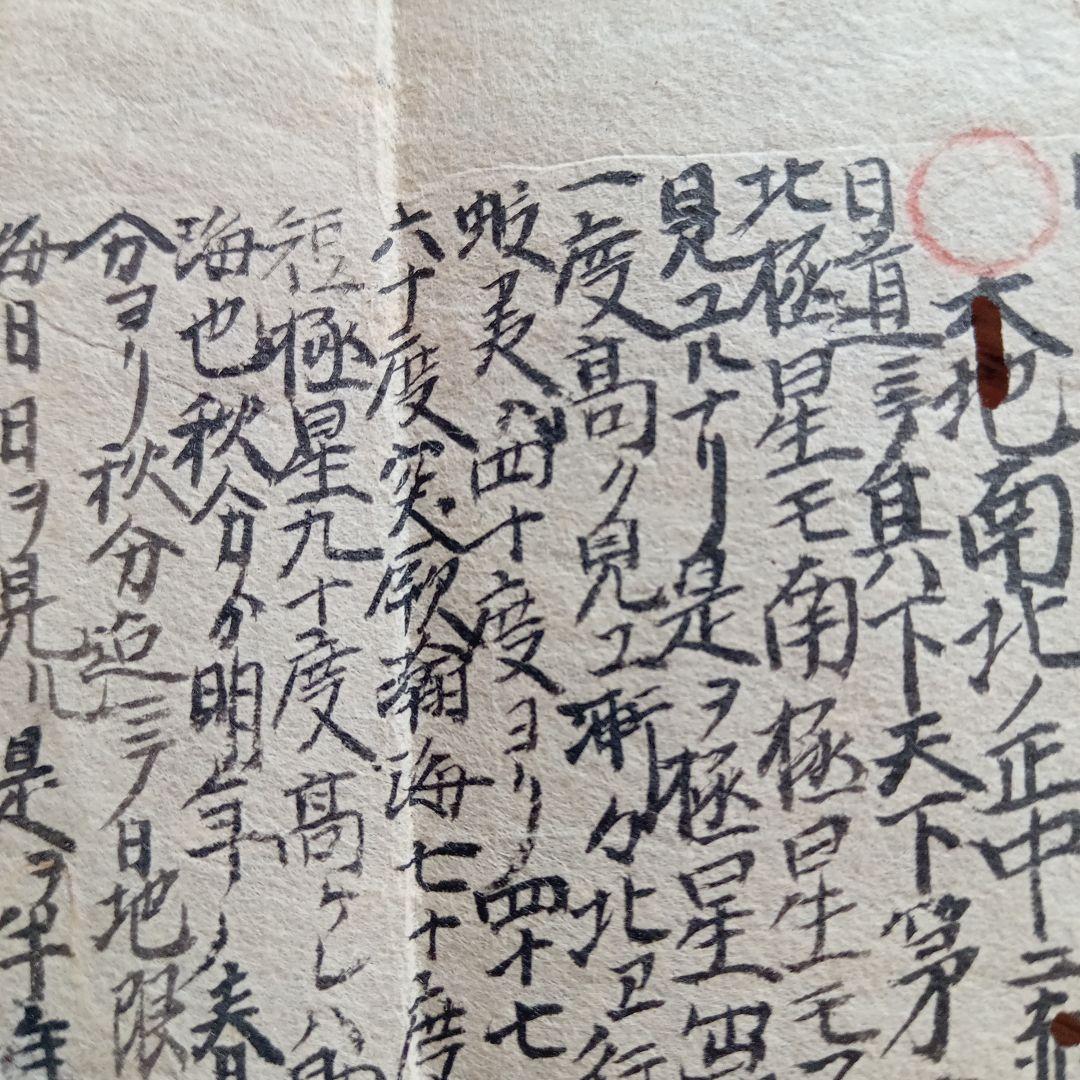 天地南北ノ正中ニ
日道ニテ其下天下第
北極星モ南極星モ
見エルナリ是ヲ極星四
一度高ク見エ漸々北ヱ行
蝦夷ハ四十度ヨリ四十七
六十度突厥瀚海七十度
極星九十度高ケレハ
海也秋分ヨリ明年ノ春
分ヨリ秋分迄ニテノ日地限
毎日日ヲ見ル是ヲ半年